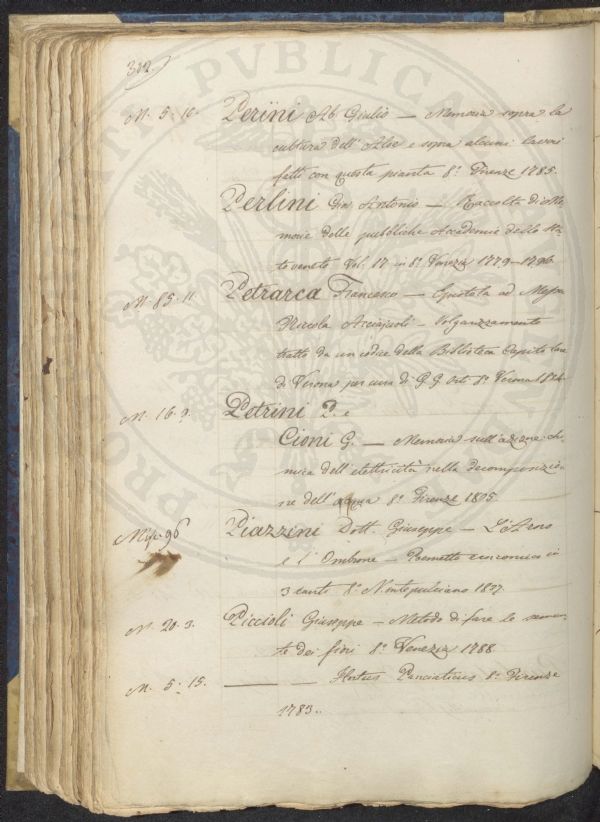 302
M. 5. 10. Perini Ab. Giulio — Memoria sopra la
cultura dell'Aloe e sopra alcuni lavori
fatti con questa pianta 8.° Firenze 1785.
Perlini Antonio — Raccolta di Me
morie delle pubbliche Accademie dello Sta
to veneto Vol. 17 in 8.° Venezia 1779–1796
M. 85. 11 Petrarca Francesco — Epistola ad Messer
Niccola Acciajuoli – Volgarizzamento
tratto da un codice della Biblioteca Capitolare
di Verona per cura di G. G. Orti 8.° Verona
M. 16. 9. Petrini P. e
Cioni G. — Memoria sull'azione chi
mica dell'elettricità nella decomposizio
ne dell'acqua 8.° Firenze 1805
Misc. 96 Piazzini Dott. Giuseppe — L'Arno
e l'Ombrone — Poemetto in
3 canti 8.° Montepulciano 1827
M. 20. 3. Piccioli Giuseppe — Metodo di fare le semen
te dei fiori 8.° Venezia 1788
M. 5. 15. — Hortus Panciaticus 8.° Firenze
1783..
PUBLICA